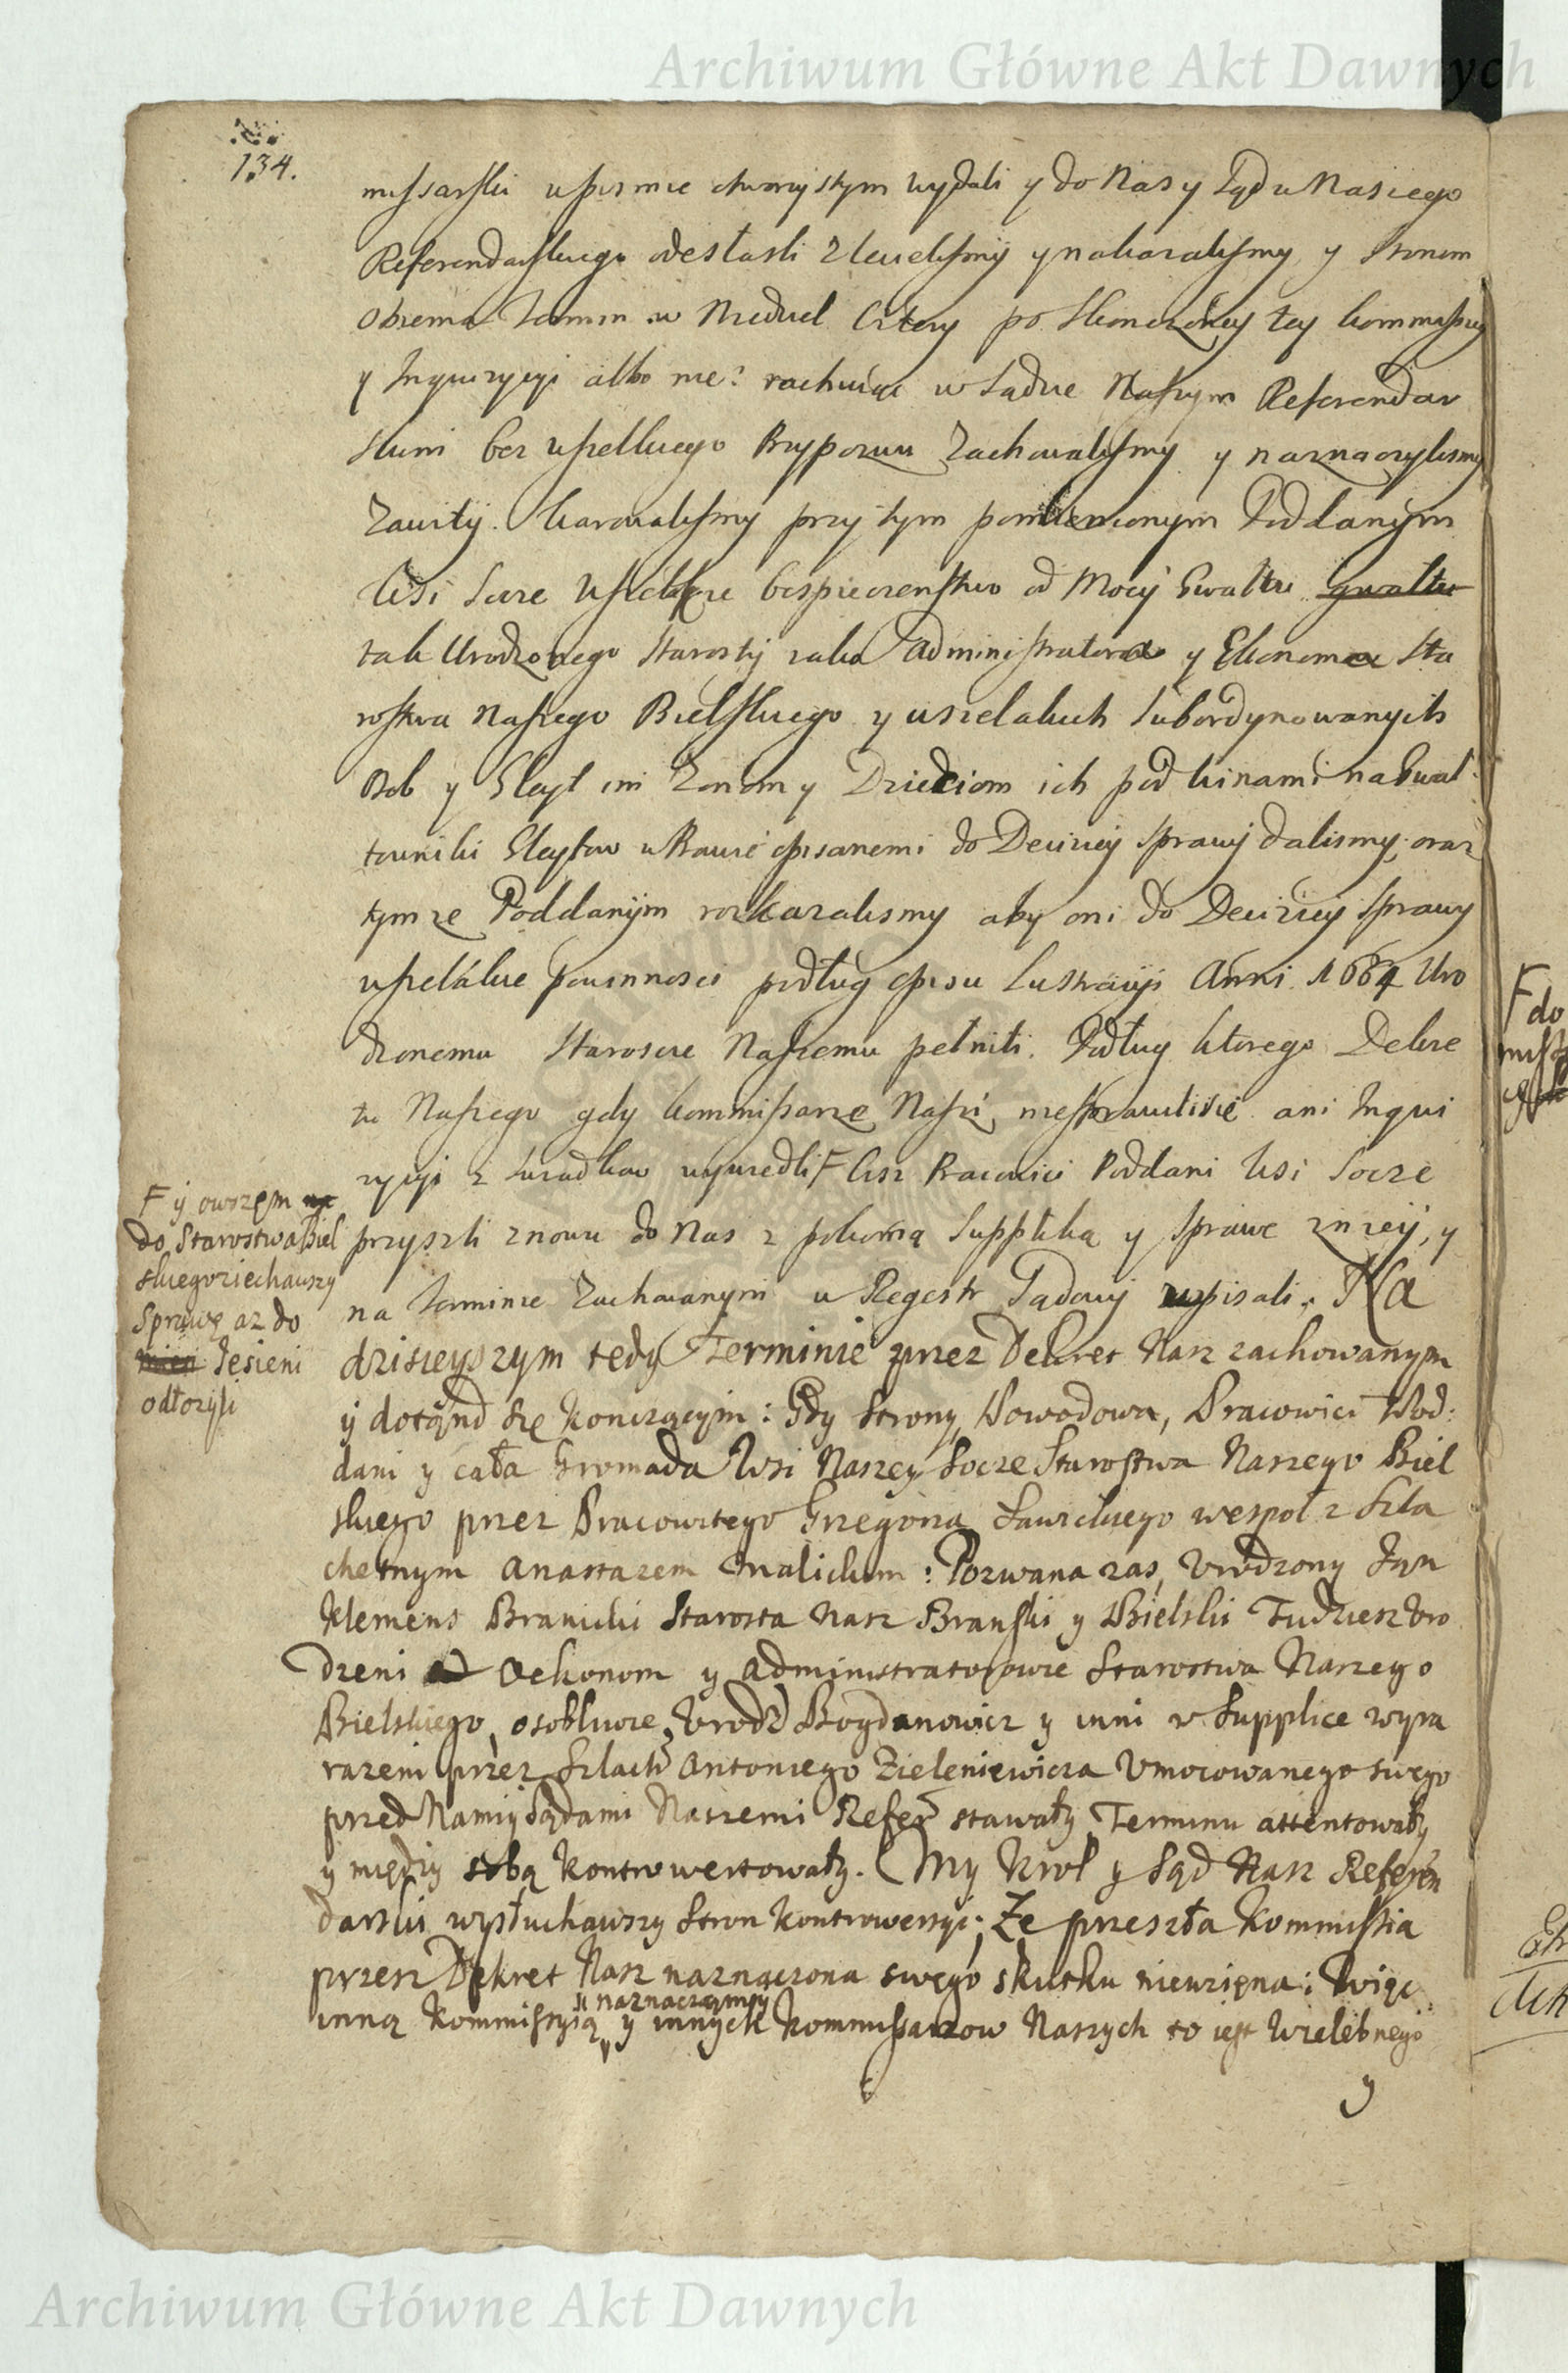 Archiwum Główne Akt Dawnych
134.
missarski w pismie otworzystym wydali y do Nas y Sądu Naszego
Referendarskiego odesłali zlecilismy y nakazalismy y Stronom
Obiema Termin w Niedziel Cztery po skonczoney tey kommissyi
y Inquizycyi albo nie: rachuiąc w Sądzie Naszym Referendar
skim bez wszelkiego Przypozwu Zachowalismy y naznaczylismy
Zawity. Warowalismy przy tym pomienionym Poddanym
Wsi Socze wszelkie bespieczenstwo od Mocy Gwałtu gwałtu
tak Urodzonego Starosty iako Administratora y Ekonoma Sta
rostwa Naszego Bielskiego y wszelakich Subordynowanych
Osob y Gleyt im Zonom y Dzieciom ich pod winami na Gwał
towniki Gleytow w Prawie opisanemi do Deciziey Sprawy dalismy, oraz
tymze Poddanym rozkazalismy aby oni do Deciziey Sprawy
wszelakie powinnosci podług opisu Lustracyi Anni 1664 Uro
dzonemu Staroscie Naszemu pełnili. Podług ktorego Dekre
tu Naszego gdy kommissarze Naszi nie sprawili sie ani Inqui
zycyi z swiadkow wywiedli F Ciz Pracowici Poddani Wsi Socze
przyszli znowu do Nas z pokorną Suppliką y Sprawe z niey, y
na Terminie Zachowanym w Regestr Sądowy wpisali. Na
F y owszem na
do Starostwa Biel
skiego ziechawszy
Sprawę az do
Jesieni
odłozyli
dzisieyszym tedy Terminie przez Dekret Nasz zachowanym
y dotąnd się konczącym: Gdy Strony, Powodowa, Pracowici Pod:
dani y cała Gromada Wsi Naszey Socze Starostwa Naszego Biel
skiego przez Pracowitego Grzegorza Sawickiego wespoł z Szla
chetnym Anastazem Malickim: Pozwana zas, Urodzony Jan
Klemens Branicki Starosta Nasz Branski y Bielski Tudziesz Uro
dzeni Oekonom y Administratorowie Starostwa Naszego
Bielskiego, osobliwie, Urodz Bogdanowicz y inni w Supplice wyra
razeni przez Szlach Antoniego Zieleniewicza Umocowanego swego
przed Nami y Sądami Naszemi Refer stawały Terminu attentowały
y między sobą kontrowertowały. My Krol y Sąd Nasz Referen
darski wysłuchawszy Stron kontrowersyi: Ze przeszła Kommissia
przez Dekret Nasz naznaczona swego skutku niewzięna: Więc
si naznaczamy
inną Kommissyją y innych kommissarzow Naszych to iest Wielebnego
y
F do
Archiwum Główne Akt Dawnych